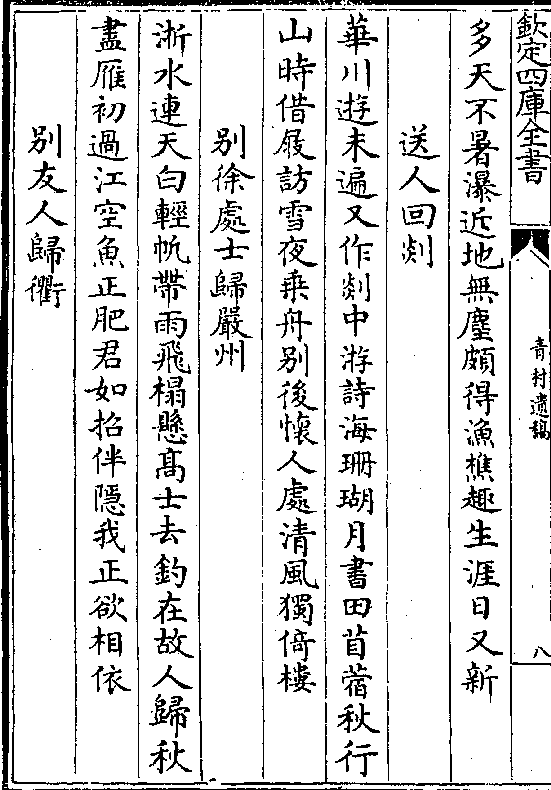 欽定四庫全書
青村遺稿
八
多天不暑瀑近地無塵頗得漁樵趣生涯日又新
送人回剡
華川遊未遍又作剡中游詩海珊瑚月書田苜蓿秋行
山時借屐訪雪夜乗舟别後懷人處清風獨倚樓
别徐處士歸嚴州
浙水連天白輕帆帶雨飛榻懸髙士去釣在故人歸秋
盡雁初過江空魚正肥君如招伴隱我正欲相依
别友人歸衢